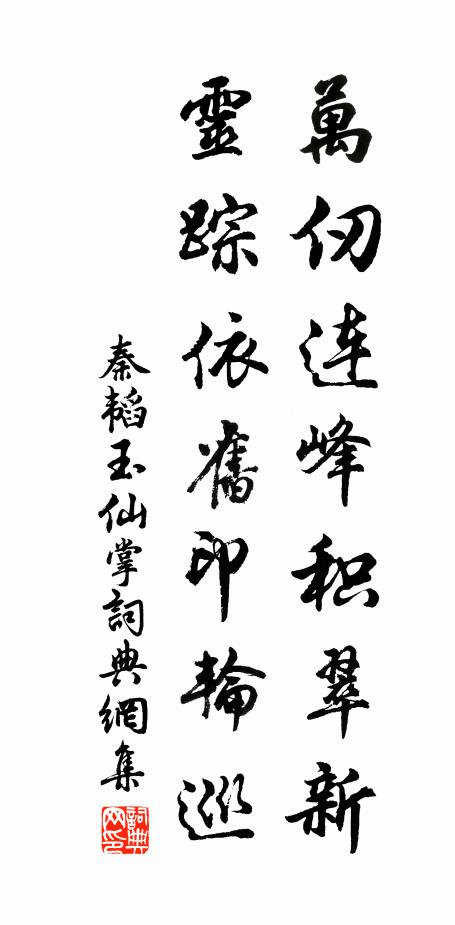 萬仞連峰积翠新
靈踪依舊印輪巡
秦韬玉仙掌詞典網集
詞典网印